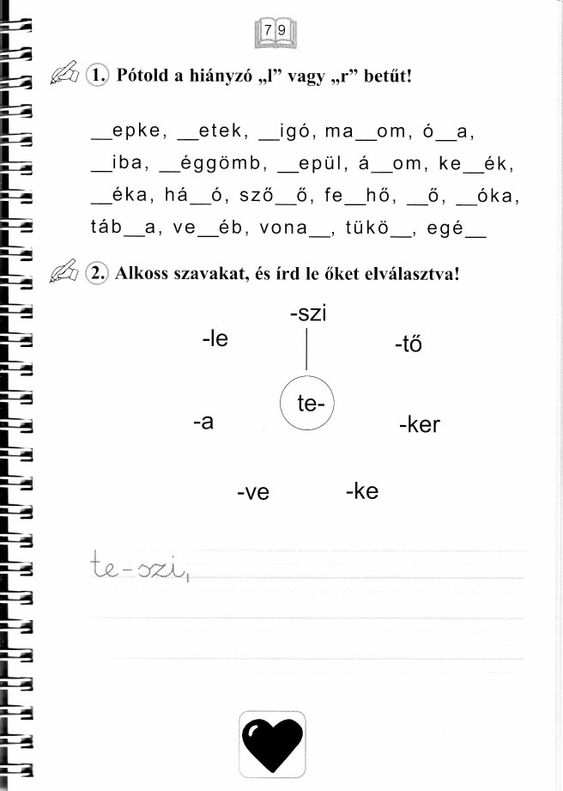 79
1. Pótold a hiányzó „l” vagy „r” betűt!
__epke, __etek, __igó, ma__om, ó__a,
__iba, __éggömb, __epül, á__om, ke__ék,
__éka, há__ó, sző__ő, fe__hő, __ő, __óka,
táb__a, ve__éb, vona__, tükö__, egé__
2. Alkoss szavakat, és írd le őket elválasztva!
-szi
-le
-tő
te-
-a
-ker
-ve
-ke
te-szi,